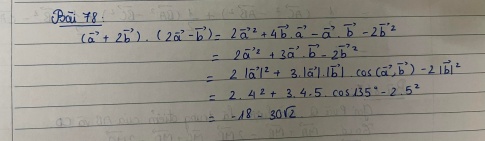 Bài 78:
(a⃗ + 2b⃗) . (2a⃗ - b⃗) = 2a⃗² + 4b⃗.a⃗ - a⃗.b⃗ - 2b⃗²
= 2a⃗² + 3a⃗.b⃗ - 2b⃗²
= 2|a⃗|² + 3.|a⃗|.|b⃗|.cos(a⃗,b⃗) - 2|b⃗|²
= 2.4² + 3.4.5.cos135° - 2.5²
= -18 - 30√2